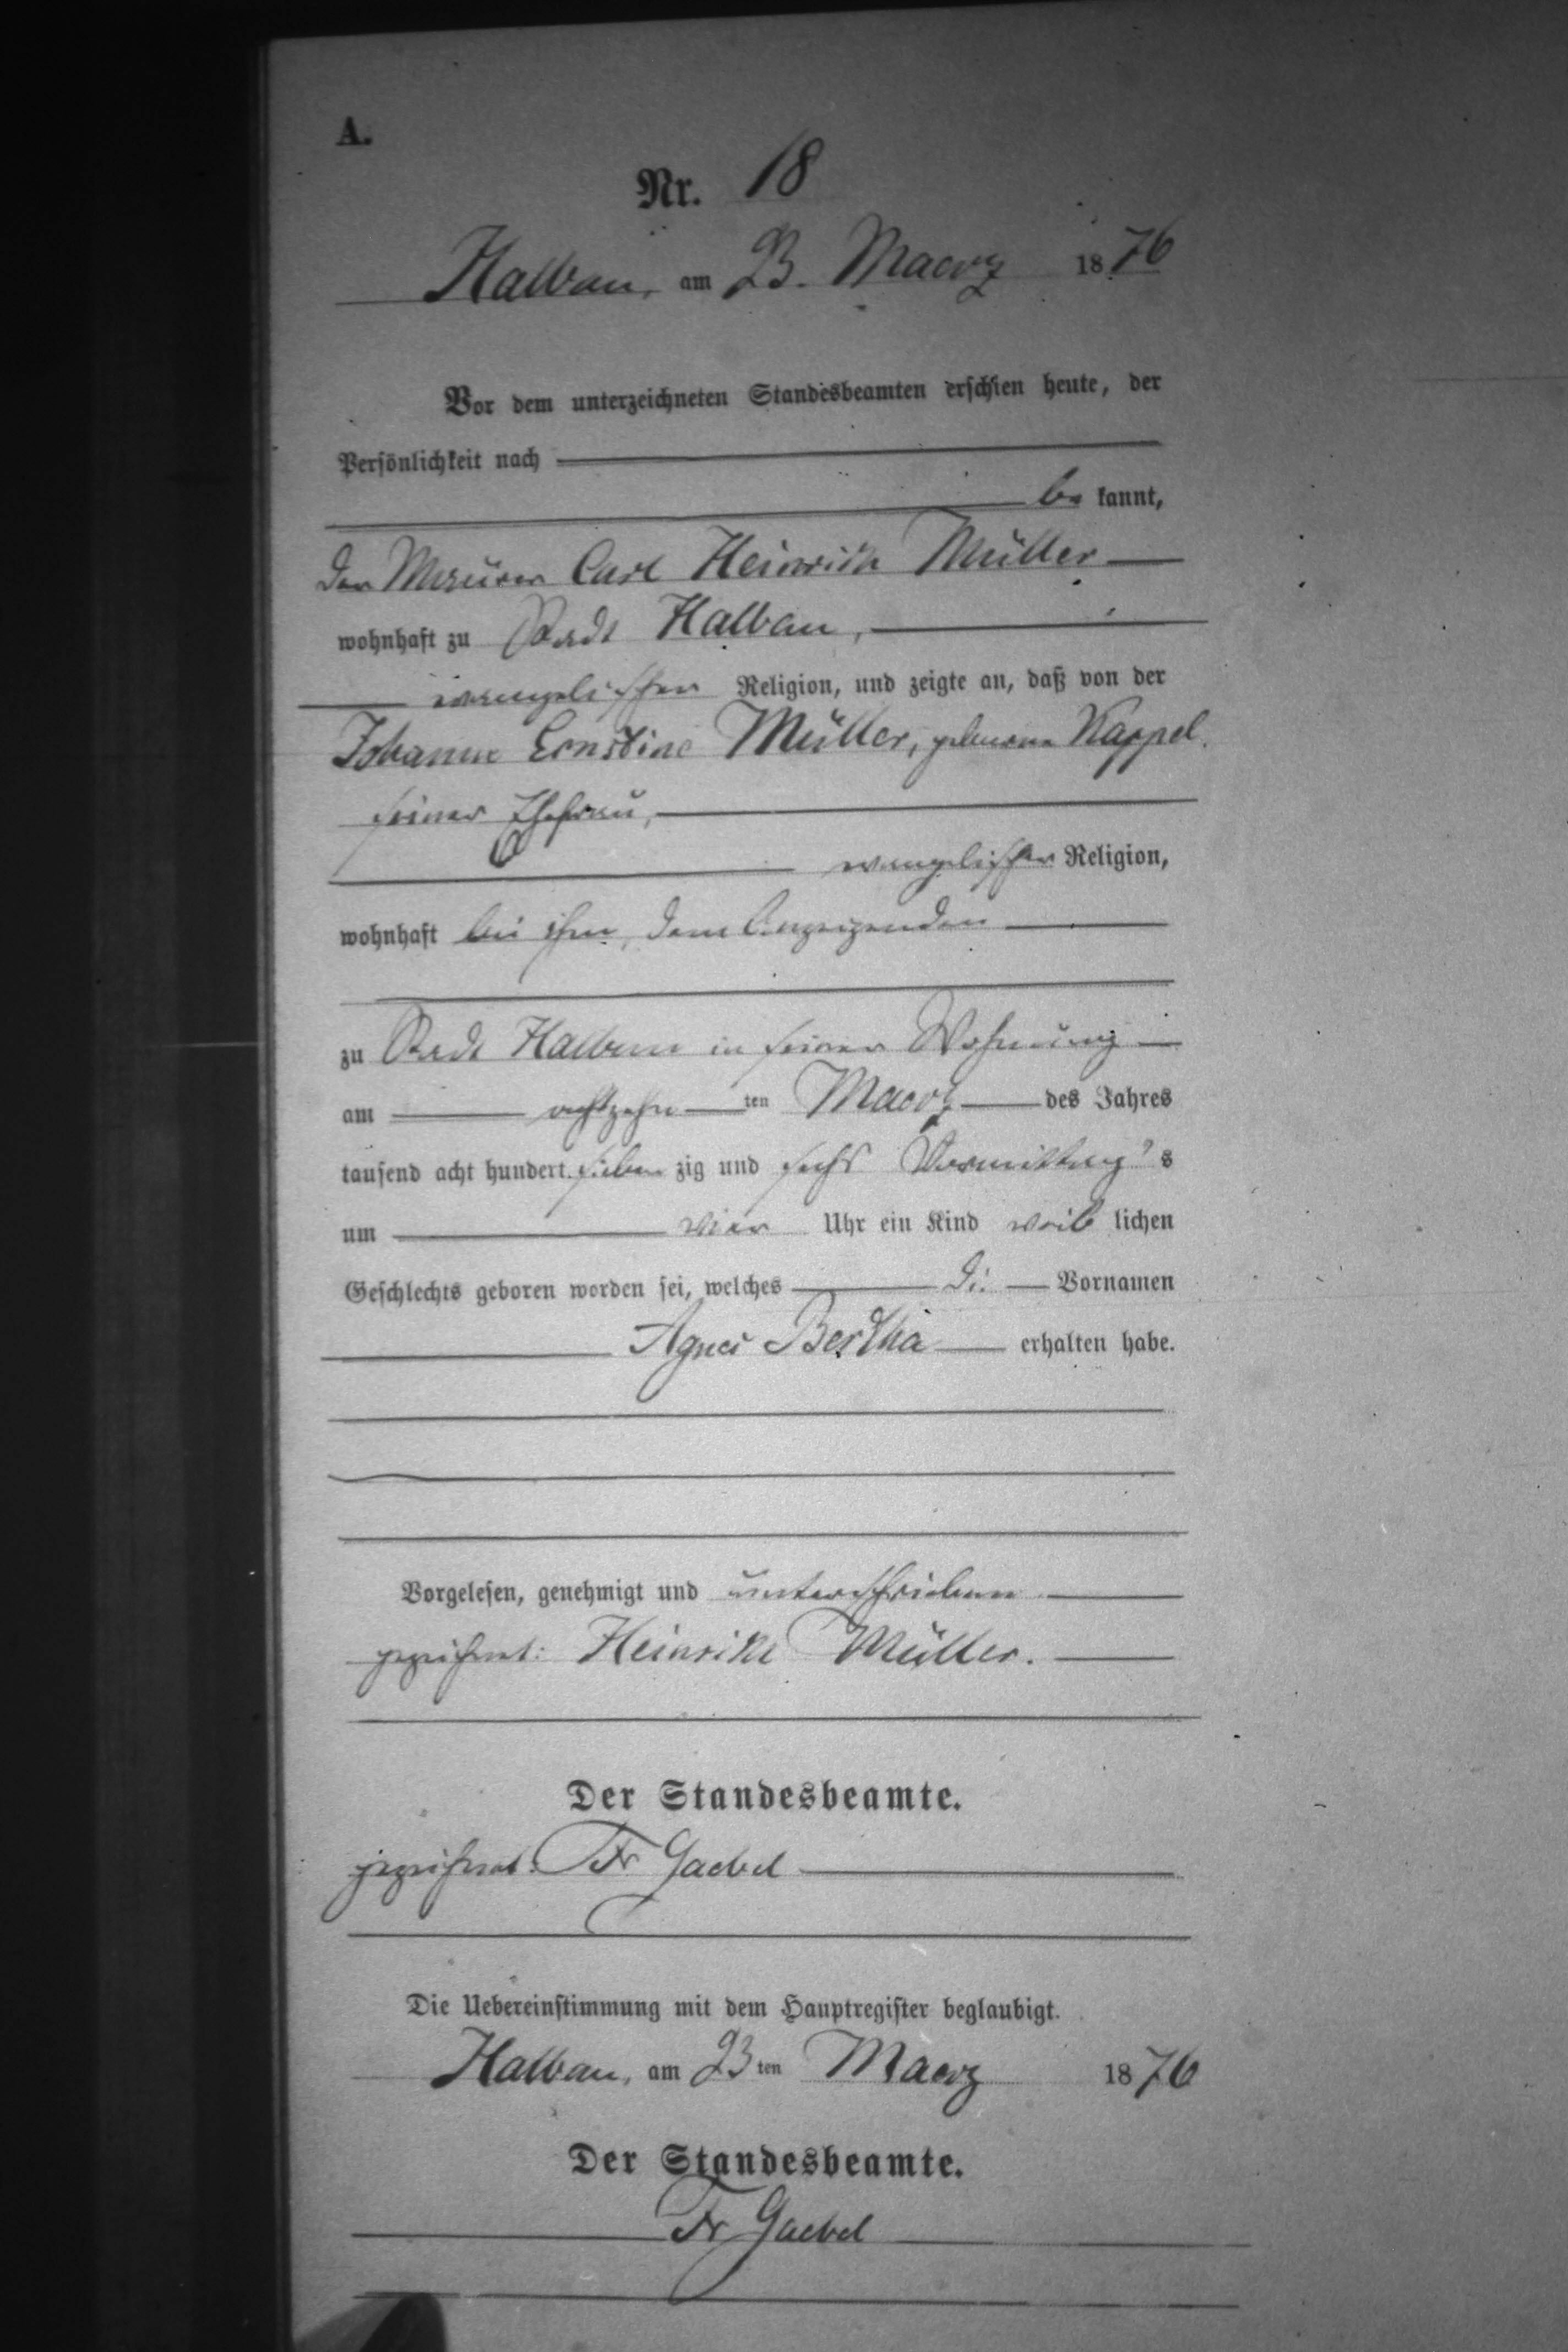 A.
Nr. 18
Halbau, am 23. Maerz 1876
Vor dem unterzeichneten Standesbeamten erschien heute, der
Persönlichkeit nach
be kannt,
der Maurer Carl Heinrich Müller
wohnhaft zu Stadt Halbau,
evangelischer Religion, und zeigte an, daß von der
Johanne Ernstine Müller, geborene Kappel,
seiner Ehefrau,
evangelischer Religion,
wohnhaft bei ihm, dem Anzeigenden
zu Stadt Halbau in seiner Wohnung
am achtzehn ten Maerz des Jahres
tausend acht hundert sieben zig und sechs Vormittag s
um vier Uhr ein Kind weib lichen
Geschlechts geboren worden sei, welches die Vornamen
Agnes Bertha erhalten habe.
Vorgelesen, genehmigt und unterschrieben
gezeichnet: Heinrich Müller.
Der Standesbeamte.
gezeichnet: Fr Gaebel
Die Uebereinstimmung mit dem Hauptregister beglaubigt.
Halbau, am 23 ten Maerz 1876
Der Standesbeamte.
Fr Gaebel